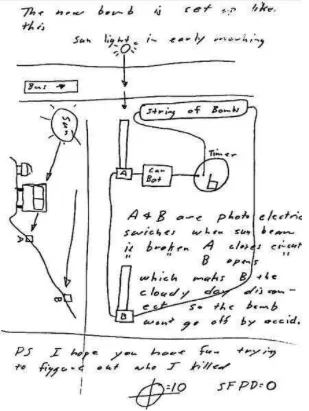 The new bomb is set up like
this
sun light in early morning
Bus
Sun
string of Bombs
Timer
A
Car
Bat
A
B
B
A & B are photo electric
swiches when sun beam
is broken A closes circut
" " B opens
which maks B the
cloudy day discon-
ect so the bomb
wont go off by accid.
PS I hope you have fun trying
to figgure out who I killed
=10 SFPD=0